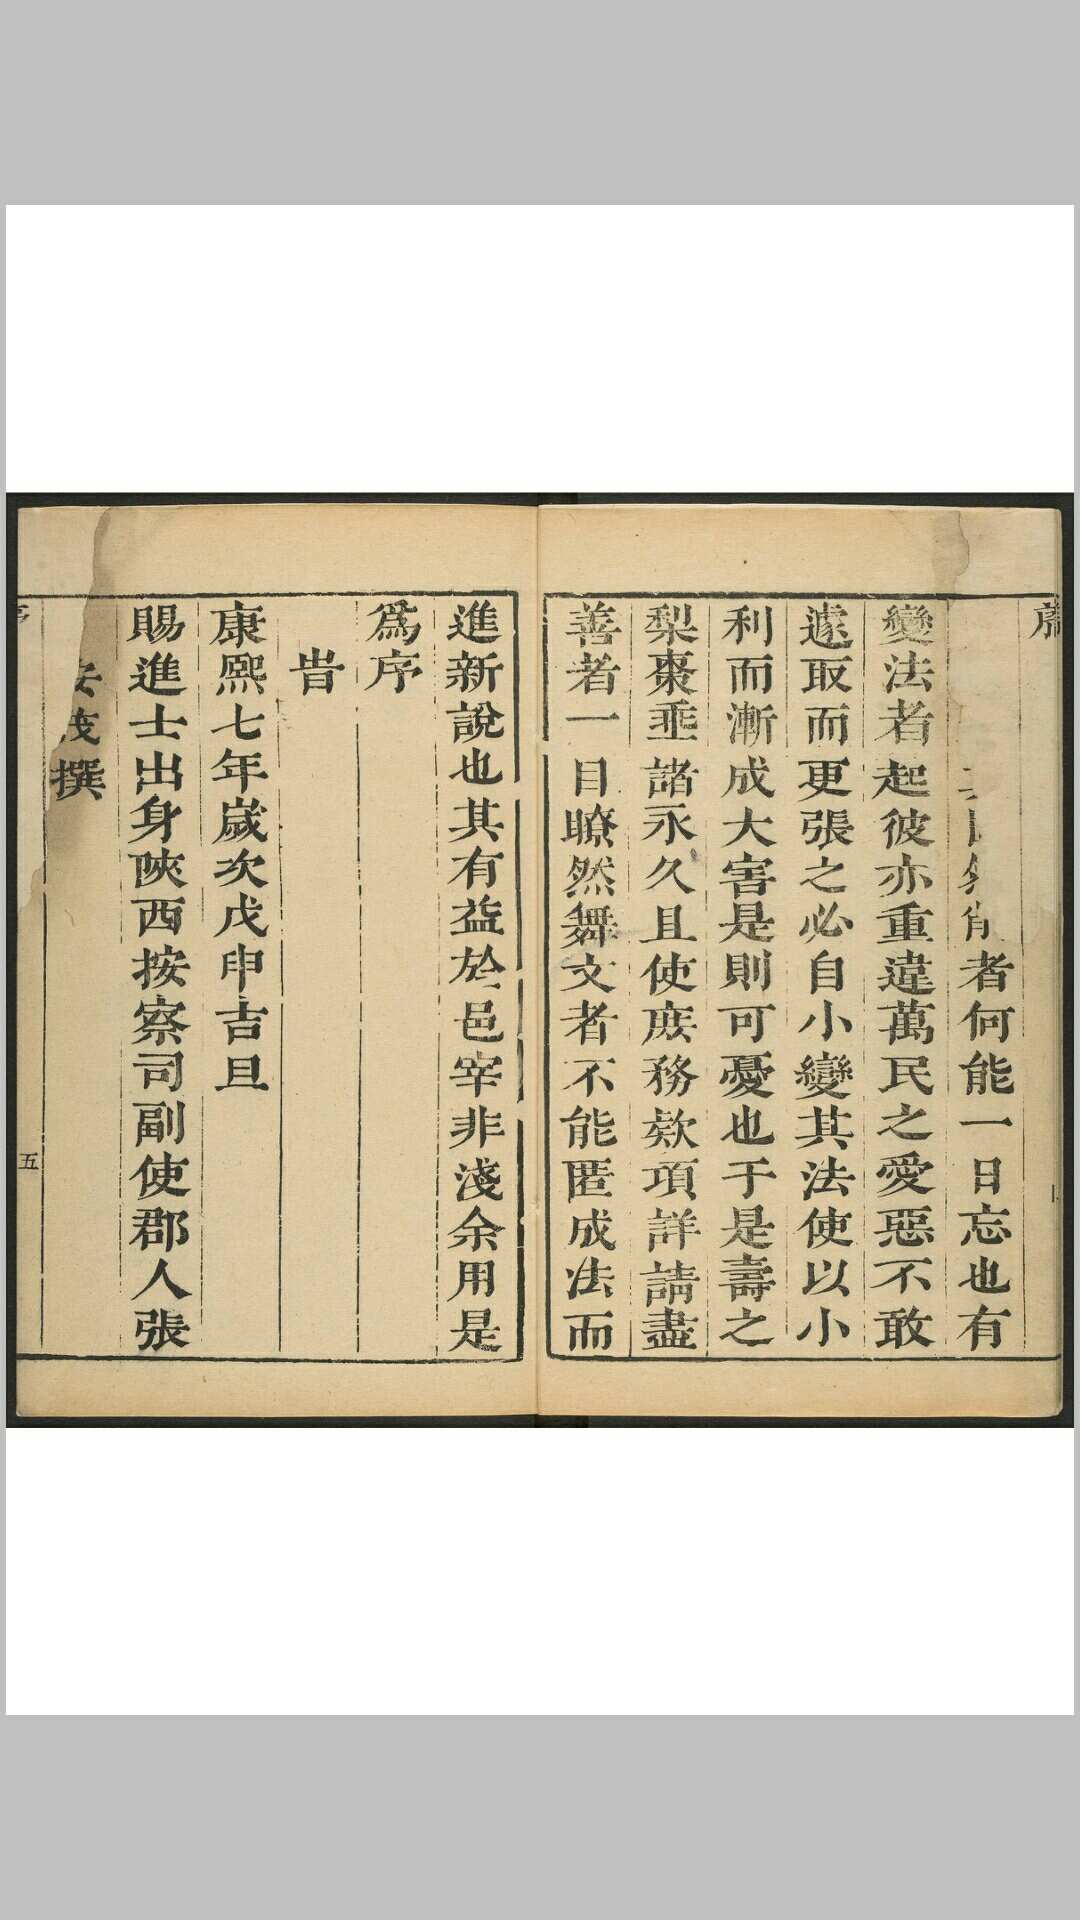 者何能一日忘也有
變法者起彼亦重違萬民之愛惡不敢
遽取而更張之必自小變其法使以小
利而漸成大害是則可憂也于是壽之
梨棗垂諸永久且使庶務欵項詳請盡
善者一目瞭然舞文者不能匿成法而
進新說也其有益於邑宰非淺余用是
爲序
旹
康熙七年歲次戊申吉旦
賜進士出身陝西按察司副使郡人張
茂撰
五